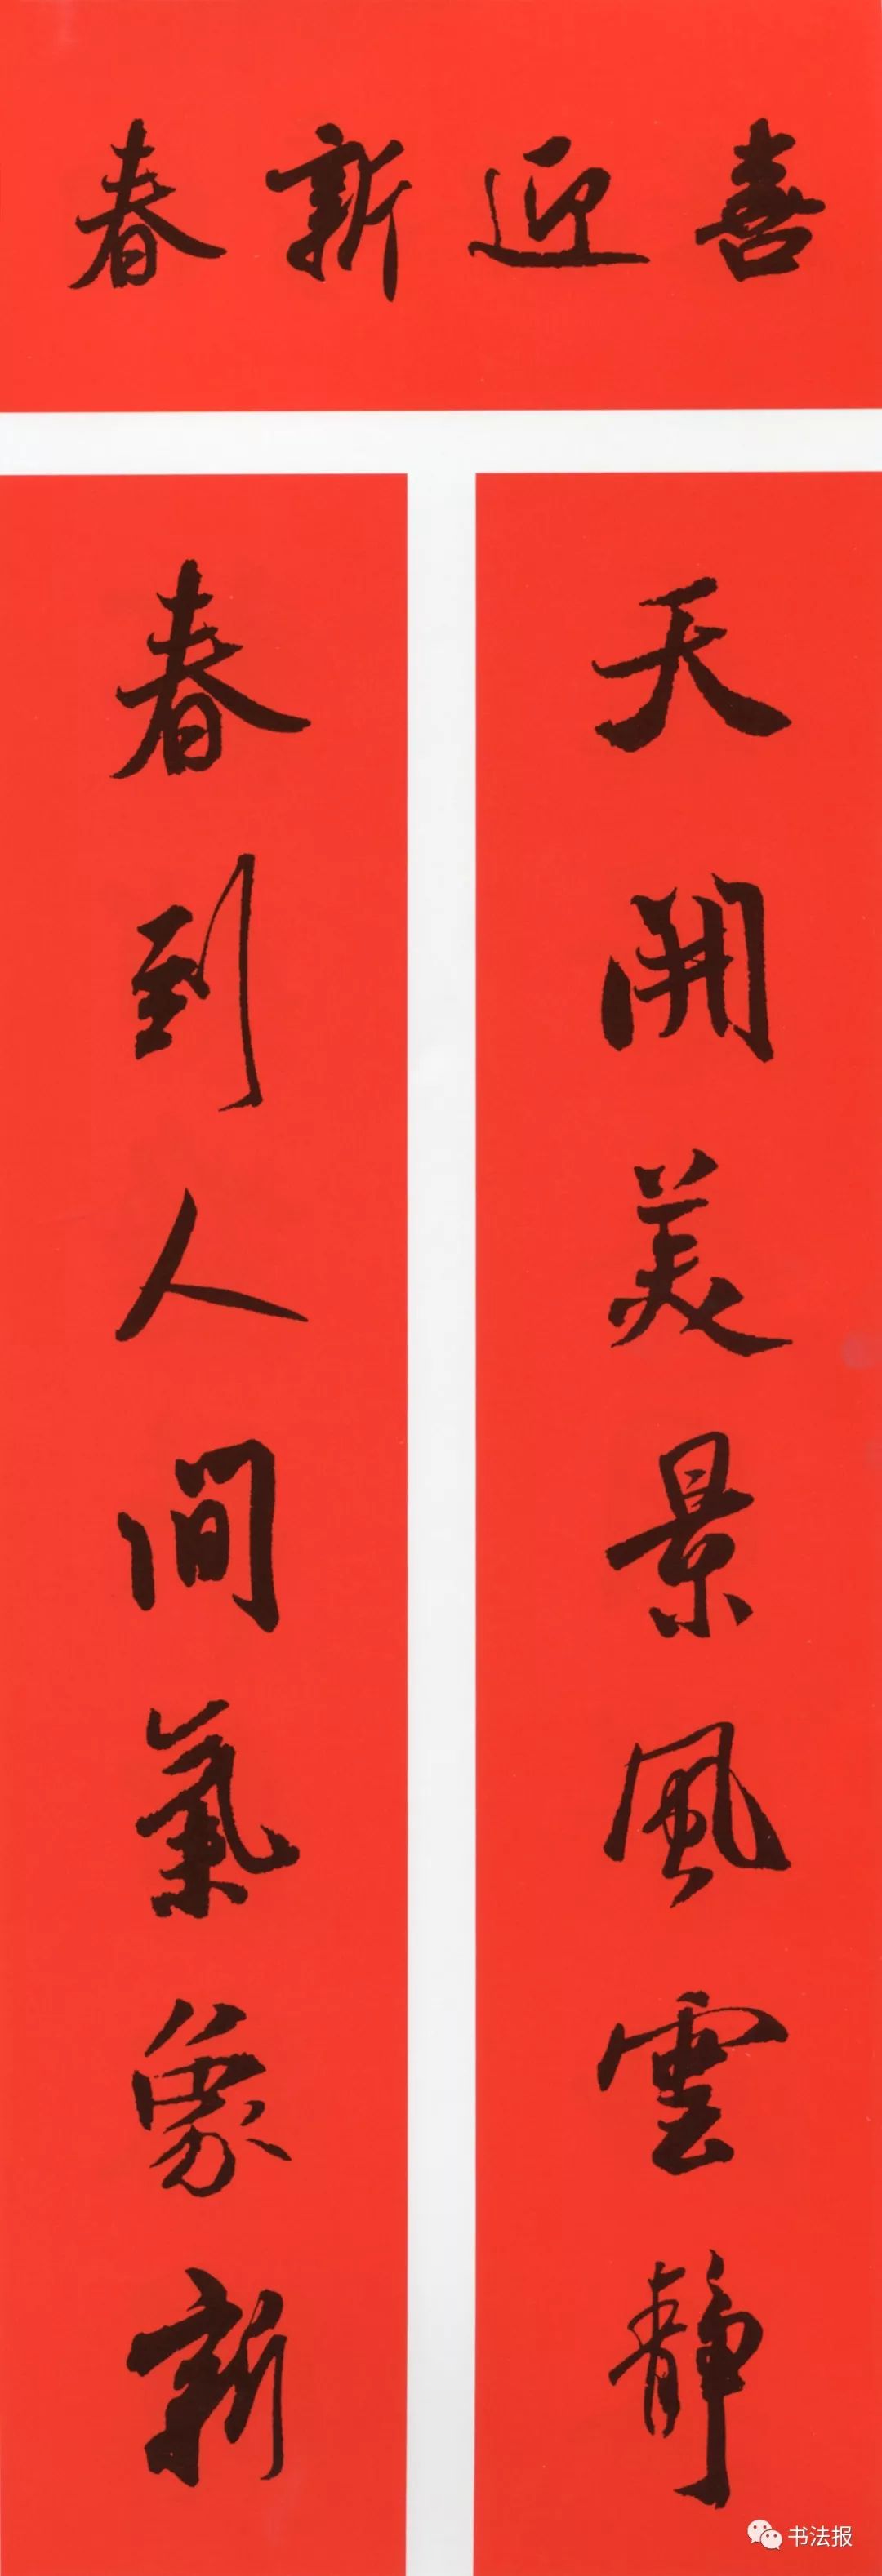 喜迎新春
天開美景風雲靜
春到人間氣象新
书法报